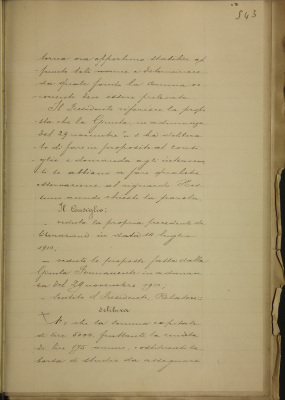 543
torna ora opportuno stabilire ap
punto tale
da quale fondo la somma oc
corrente deve essere prelevata.
Il Presidente riferisce la propo
sta che la Giunta in adunanza
del 29 novembre u.s. ha delibera
to di fare in proposito al Consi
glio e domanda agli interve
nuti se abbiano a fare qualche
osservazione al riguardo. Nes
suno avendo chiesto la parola
Il Consiglio:
- veduta la propria precedente de
liberazione in data 14 luglio
1911,
- veduta la proposta fatta dalla
Giunta Permanente in adunan
za del 29 novembre 1911,
- Sentito il Presidente Relatore:
delibera
che la somma capitale
di lire 5000, fruttante la rendita
di lire 175 annue, costituente la
borsa di studio da assegnare